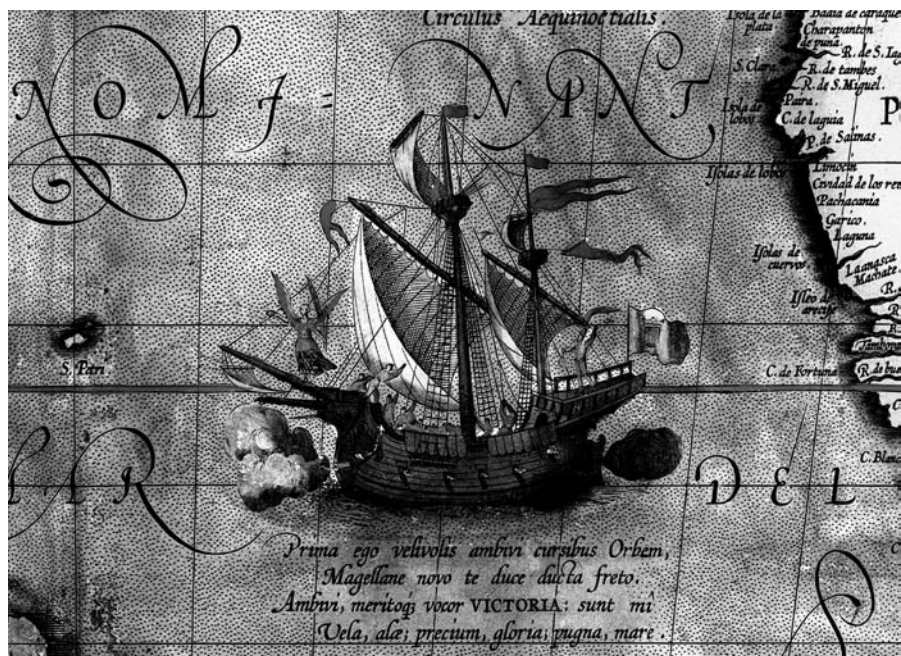 Circulus Aequinoctialis.
Isola de la plata
Badia de caraque
Charapanton
de puna.
R. de S. Iag
S. Clara
R. de tambes
R. de S. Miguel.
Paita.
Isola de lobos
C. de laguia
P. de Salinas.
NOMI=NINT
P
Isolas de lobos
Limocin
Cividad de los ree
Pachacania
Garico.
Laguna
Isolas de cuervos
Laanasca
Machate.
R.
Isleo de arecife
R
R
Tambo
S. Petri
C. de Fortuna
R. de bue
C.
C. Blanc
AR DEL
Prima ego velivolis ambivi cursibus Orbem,
Magellane novo te duce ducta freto.
Ambivi, meritoq; vocor VICTORIA: sunt mî
Vela, alæ; precium, gloria; pugna, mare.